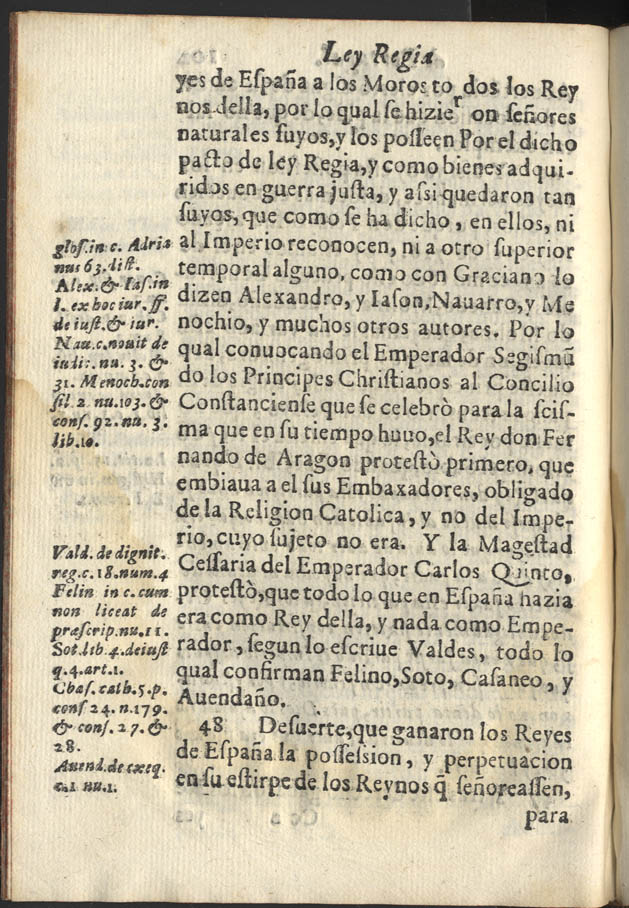 Ley Regia
yes de España a los Moros to dos los Rey
nos della, por lo qual se hizier on señores
naturales suyos, y los posseen Por el dicho
pacto de ley Regia, y como bienes adqui-
ridos en guerra justa, y assi quedaron tan
suyos, que como se ha dicho, en ellos, ni
al Imperio reconocen, ni a otro superior
temporal alguno, como con Graciano lo
dizen Alexandro, y Iason, Nauarro, y Me
nochio, y muchos otros autores. Por lo
qual conuocando el Emperador Segismũ
do los Principes Christianos al Concilio
Constanciense que se celebrò para la scis-
ma que en su tiempo huuo, el Rey don Fer
nando de Aragon protestò primero, que
embiaua a el sus Embaxadores, obligado
de la Religion Catolica, y no del Impe-
rio, cuyo sujeto no era. Y la Magestad
Cessaria del Emperador Carlos Quinto,
protestò, que todo lo que en España hazia
era como Rey della, y nada como Empe-
rador, segun lo escriue Valdes, todo lo
qual confirman Felino, Soto, Casaneo, y
Auendaño.
48 Desuerte, que ganaron los Reyes
de España la possession, y perpetuacion
en su estirpe de los Reynos q̃ señoreassen,
para
glos. in c. Adria
nus 63. dist.
Alex. & Ias. in
l. ex hoc iur. ff.
de iust. & iur.
Nau. c. nouit de
iudic. nu. 3. &
31. Menoch. con
sil 2 nu. 103. &
cons. 92. nu. 3.
lib. 10.
Vald. de dignit.
reg. c. 18. num. 4
Felin in c. cum
non liceat de
præscrip. nu. 11.
Sot. lib 4. de iust
q. 4. art. 1.
Chas. cath. 5. p.
cons 24. n. 179.
& cons. 27. &
28.
Auend. de exeq.
c. 1 nu. 1.